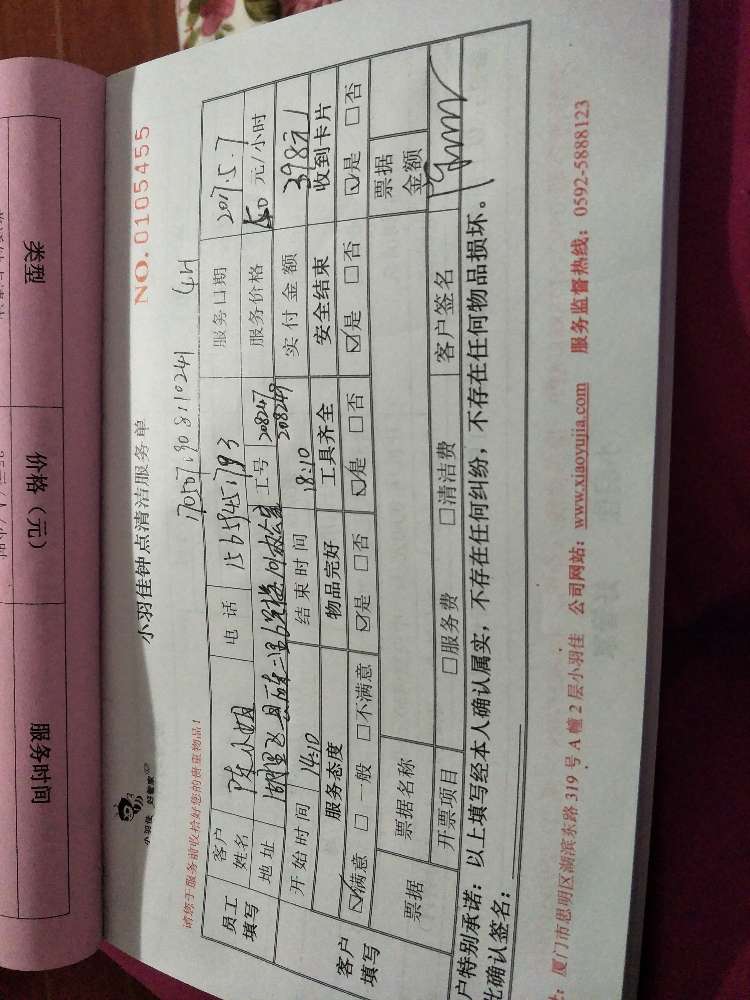 类型
价格（元）
服务时间
小羽佳 好管家
小羽佳钟点清洁服务单
NO.0105455
请您于服务前收拾好您的贵重物品！
1705071908110241 4H
员工填写 客户姓名 陈小姐 电话 服务日期 2017.5.7
地址 工号 208247 208249 服务价格 50 元/小时
开始时间 14:10 结束时间 18:10 实付金额 398元
客户填写 服务态度 物品完好 工具齐全 安全结束 收到卡片
☑满意 □一般 □不满意 ☑是 □否 ☑是 □否 ☑是 □否 ☑是 □否
票据 票据名称 票据金额
开票项目 □服务费 □清洁费 客户签名
户特别承诺：以上填写经本人确认属实，不存在任何纠纷，不存在任何物品损坏。
出确认签名：
厦门市思明区湖滨东路319号A幢2层小羽佳 公司网站：www.xiaoyujia.com 服务监督热线：0592-5888123